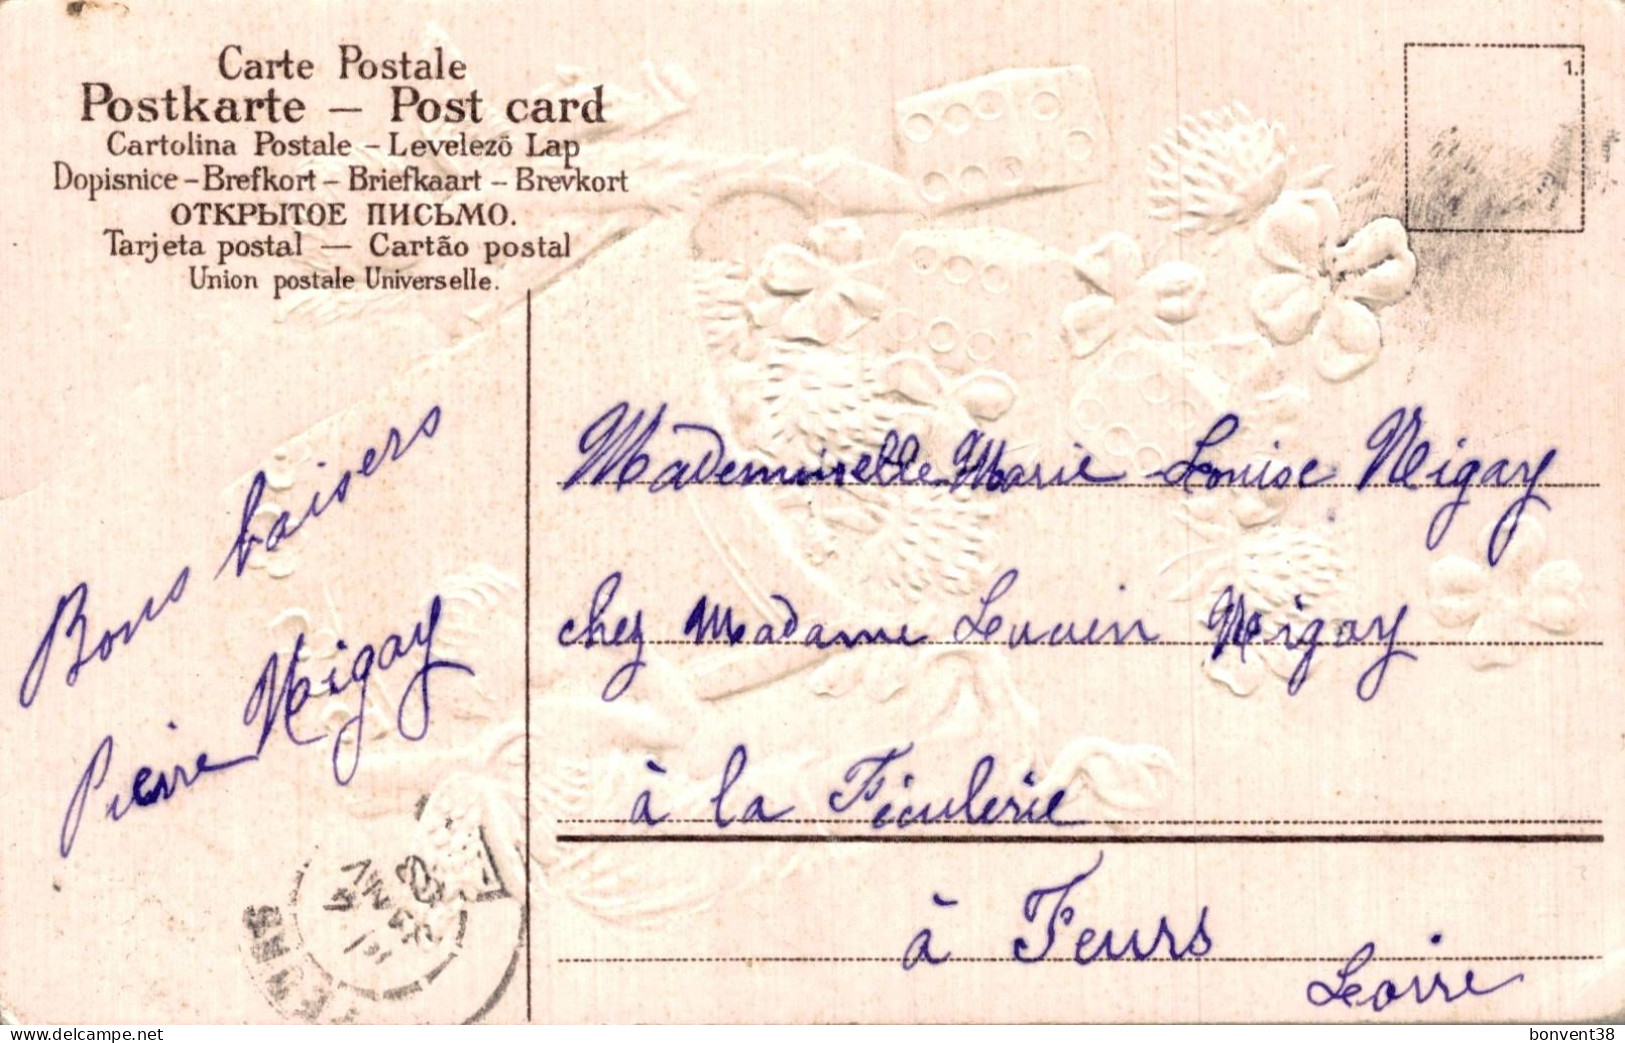 Carte Postale
Postkarte — Post card
Cartolina Postale – Levelező Lap
Dopisnice – Brefkort – Briefkaart – Brevkort
ОТКРЫТОЕ ПИСЬМО.
Tarjeta postal — Cartão postal
Union postale Universelle.
1.
Bons baisers
Pierre Nigay
Mademoiselle Marie Louise Nigay
chez Madame Nigay
à la Féculerie
à Feurs
Loire
FEURS
bonvent38